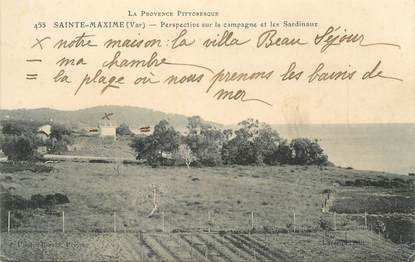 LA PROVENCE PITTORESQUE
455 SAINTE-MAXIME (Var) — Perspective sur la campagne et les Sardinaux
× notre maison: la villa Beau Séjour
— ma chambre
= la plage où nous prenons les bains de
mer